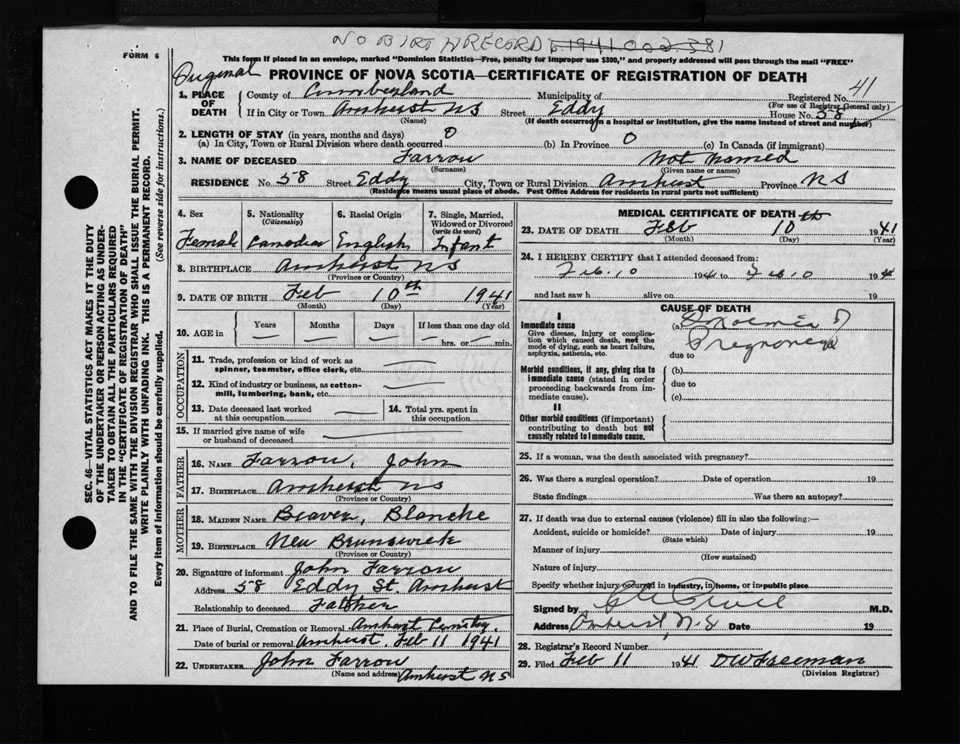 NO BIRTH RECORD 1941 002381
FORM 6
This form if placed in an envelope, marked "Dominion Statistics—Free, penalty for improper use $300," and properly addressed will pass through the mail "FREE"
Original PROVINCE OF NOVA SCOTIA—CERTIFICATE OF REGISTRATION OF DEATH
1. PLACE OF DEATH County of Cumberland Municipality of Registered No. 41
(For use of Registrar General only)
If in City or Town Amherst NS Street Eddy House No. 58
(Name) (If death occurred in a hospital or institution, give the name instead of street and number)
2. LENGTH OF STAY (in years, months and days)
(a) In City, Town or Rural Division where death occurred 0 (b) In Province 0 (c) In Canada (if immigrant)
3. NAME OF DECEASED Farrow Not Named
(Surname) (Given name or names)
RESIDENCE No. 58 Street Eddy City, Town or Rural Division Amherst Province NS
(Residence means usual place of abode. Post Office Address for residents in rural parts not sufficient)
4. Sex Female
5. Nationality (Citizenship) Canadian
6. Racial Origin English
7. Single, Married, Widowed or Divorced (write the word) Infant
8. BIRTHPLACE Amherst NS
(Province or Country)
9. DATE OF BIRTH Feb 10th 1941
(Month) (Day) (Year)
10. AGE in Years Months Days If less than one day old
hrs. or min.
OCCUPATION
11. Trade, profession or kind of work as spinner, teamster, office clerk, etc.
12. Kind of industry or business, as cotton-mill, lumbering, bank, etc.
13. Date deceased last worked at this occupation
14. Total yrs. spent in this occupation
15. If married give name of wife or husband of deceased
FATHER
16. NAME Farrow, John
17. BIRTHPLACE Amherst NS
(Province or Country)
MOTHER
18. MAIDEN NAME Beaver, Blanche
19. BIRTHPLACE New Brunswick
(Province or Country)
20. Signature of informant John Farrow
Address 58 Eddy St. Amherst
Relationship to deceased Father
21. Place of Burial, Cremation or Removal Amherst
Date of burial or removal Amherst. Feb 11 1941
22. UNDERTAKER John Farrow
(Name and address) Amherst NS
MEDICAL CERTIFICATE OF DEATH
23. DATE OF DEATH Feb 10 1941
(Month) (Day) (Year)
24. I HEREBY CERTIFY that I attended deceased from:
Feb. 10 1941 to Feb 10 19
and last saw h alive on 19
CAUSE OF DEATH
I
Immediate cause
Give disease, injury or complication which caused death, not the mode of dying, such as heart failure, asphyxia, asthenia, etc.
(a)
Pregnancy
due to
Morbid conditions, if any, giving rise to immediate cause (stated in order proceeding backwards from immediate cause).
(b)
due to
(c)
II
Other morbid conditions (if important) contributing to death but not causally related to immediate cause.
25. If a woman, was the death associated with pregnancy?
26. Was there a surgical operation? Date of operation 19
State findings Was there an autopsy?
27. If death was due to external causes (violence) fill in also the following:—
Accident, suicide or homicide? Date of injury 19
(State which)
Manner of injury
(How sustained)
Nature of injury
Specify whether injury occurred in industry, in home, or in public place
Signed by M.D.
Address Amherst N.S Date 19
28. Registrar's Record Number
29. Filed Feb 11 1941 DW Freeman
(Division Registrar)
SEC. 46—VITAL STATISTICS ACT MAKES IT THE DUTY
OF THE UNDERTAKER OR PERSON ACTING AS UNDER-
TAKER TO OBTAIN ALL THE PARTICULARS REQUIRED
IN THE "CERTIFICATE OF REGISTRATION OF DEATH"
AND TO FILE THE SAME WITH THE DIVISION REGISTRAR WHO SHALL ISSUE THE BURIAL PERMIT.
WRITE PLAINLY WITH UNFADING INK. THIS IS A PERMANENT RECORD.
Every item of information should be carefully supplied. (See reverse side for instructions.)